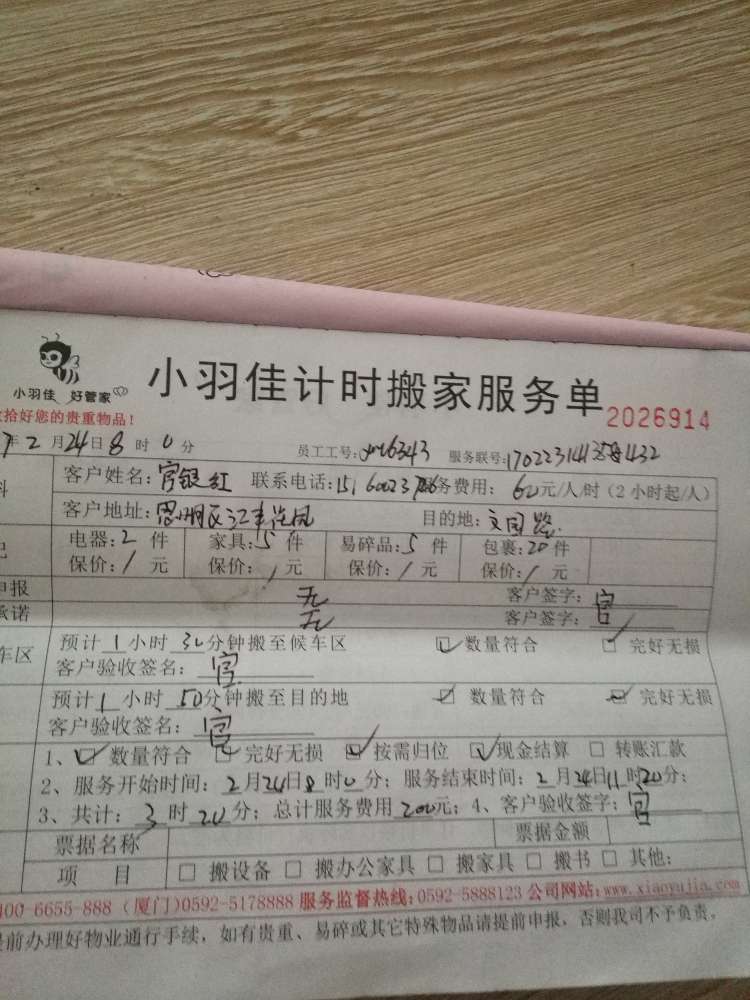 小羽佳 好管家
小羽佳计时搬家服务单
2026914
拾好您的贵重物品！
7年2月24日8时0分 员工工号: 6343 服务联号:
客户姓名:官银红 联系电话: 服务费用:60元/人/时（2小时起/人）
客户地址:思明区 目的地:文园路
电器:2件 家具:5件 易碎品:5件 包裹:20件
保价:/元 保价:/元 保价:/元 保价:/元
申报 无 客户签字:官
承诺 无 客户签字:官
车区 预计1小时30分钟搬至候车区 ☑数量符合 ☑完好无损
客户验收签名:官
预计1小时50分钟搬至目的地 ☑数量符合 ☑完好无损
客户验收签名:官
1、☑数量符合 ☑完好无损 ☑按需归位 ☑现金结算 □转账汇款
2、服务开始时间:2月24日8时0分；服务结束时间:2月24日11时20分；
3、共计:3时20分；总计服务费用200元；4、客户验收签字:官
票据名称 票据金额
项 目 □搬设备 □搬办公家具 □搬家具 □搬书 □其他:
00-6655-888（厦门）0592-5178888 服务监督热线:0592-5888123 公司网站:www.xiaoyujia.com
前办理好物业通行手续，如有贵重、易碎或其它特殊物品请提前申报，否则我司不予负责。